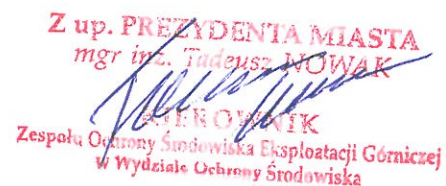 Z up. PREZYDENTA MIASTA
mgr inż. Tadeusz NOWAK
KIEROWNIK
Zespołu Ochrony Środowiska Eksploatacji Górniczej
w Wydziale Ochrony Środowiska